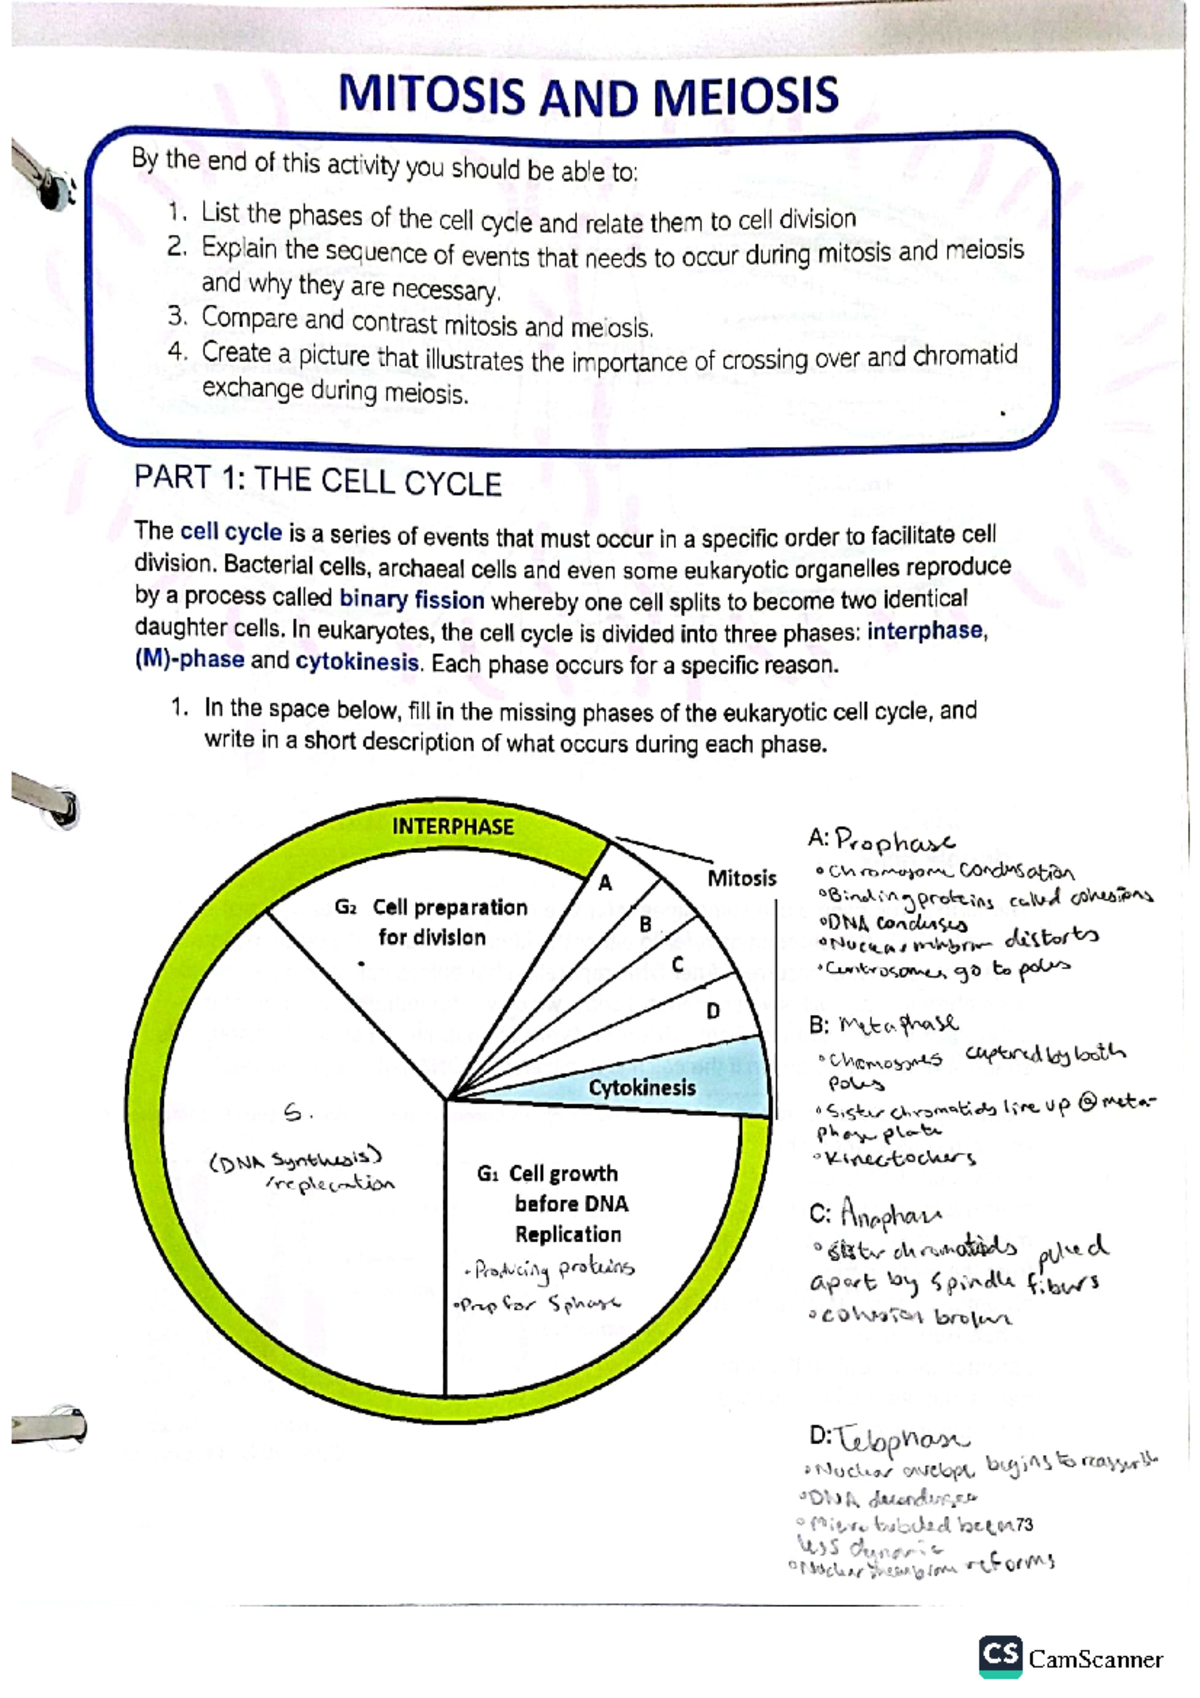 MITOSIS AND MEIOSIS
By the end of this activity you should be able to:
1. List the phases of the cell cycle and relate them to cell division
2. Explain the sequence of events that needs to occur during mitosis and meiosis
and why they are necessary.
3. Compare and contrast mitosis and meiosis.
4. Create a picture that illustrates the importance of crossing over and chromatid
exchange during meiosis.
PART 1: THE CELL CYCLE
The cell cycle is a series of events that must occur in a specific order to facilitate cell
division. Bacterial cells, archaeal cells and even some eukaryotic organelles reproduce
by a process called binary fission whereby one cell splits to become two identical
daughter cells. In eukaryotes, the cell cycle is divided into three phases: interphase,
(M)-phase and cytokinesis. Each phase occurs for a specific reason.
1. In the space below, fill in the missing phases of the eukaryotic cell cycle, and
write in a short description of what occurs during each phase.
INTERPHASE
G2 Cell preparation
for division
A
B
C
D
Mitosis
Cytokinesis
S.
(DNA Synthesis)
/replecation
G1 Cell growth
before DNA
Replication
•Producing proteins
•Prep for S phase
A: Prophase
•Chromosome condensation
•Binding proteins called cohesions
•DNA condenses
distorts
•Centrosomes go to poles
B: Metaphase
captured by both
poles
•Sister chromatids line up @ meta-
phase plate
•Kinectochers
C: Anaphase
•sister chromatids pulled
apart by spindle fibers
•cohesion broken
D: Telophase
•Nuclear envelope begins to
•DNA
73
less dynamic
•Nuclear reforms
CS CamScanner